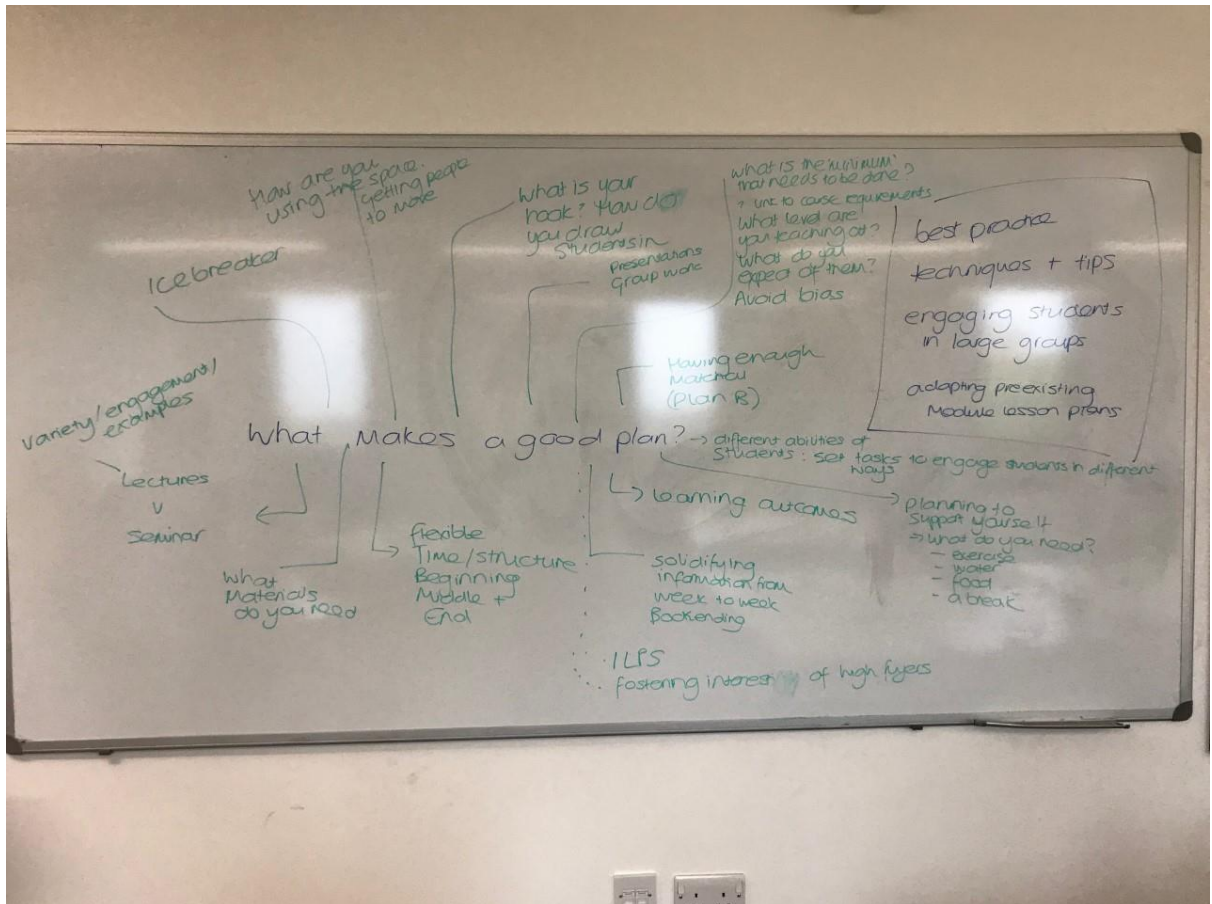 How are you
using the space.
getting people
to move
Icebreaker
What is your
hook? How do
you draw
students in
presentations
Group work
what is the 'minimum'
that needs to be done?
link to course requirements
What level are
you teaching at?
What do you
expect of them?
Avoid bias
best practice
techniques + tips
engaging students
in large groups
adapting preexisting
Module lesson plans
Having enough
(Plan B)
variety/engagement/
examples
Lectures
v
Seminar
What makes a good plan?
→ different abilities of
students: set tasks to engage students in different
ways
→ learning outcomes
What
Materials
do you need
flexible
Time/structure
Beginning
Middle +
End
solidifying
information from
week to week
Backending
planning to
support yourself
→ what do you need?
- exercise
- water
- food
- a break
ILPS
fostering interest of high flyers